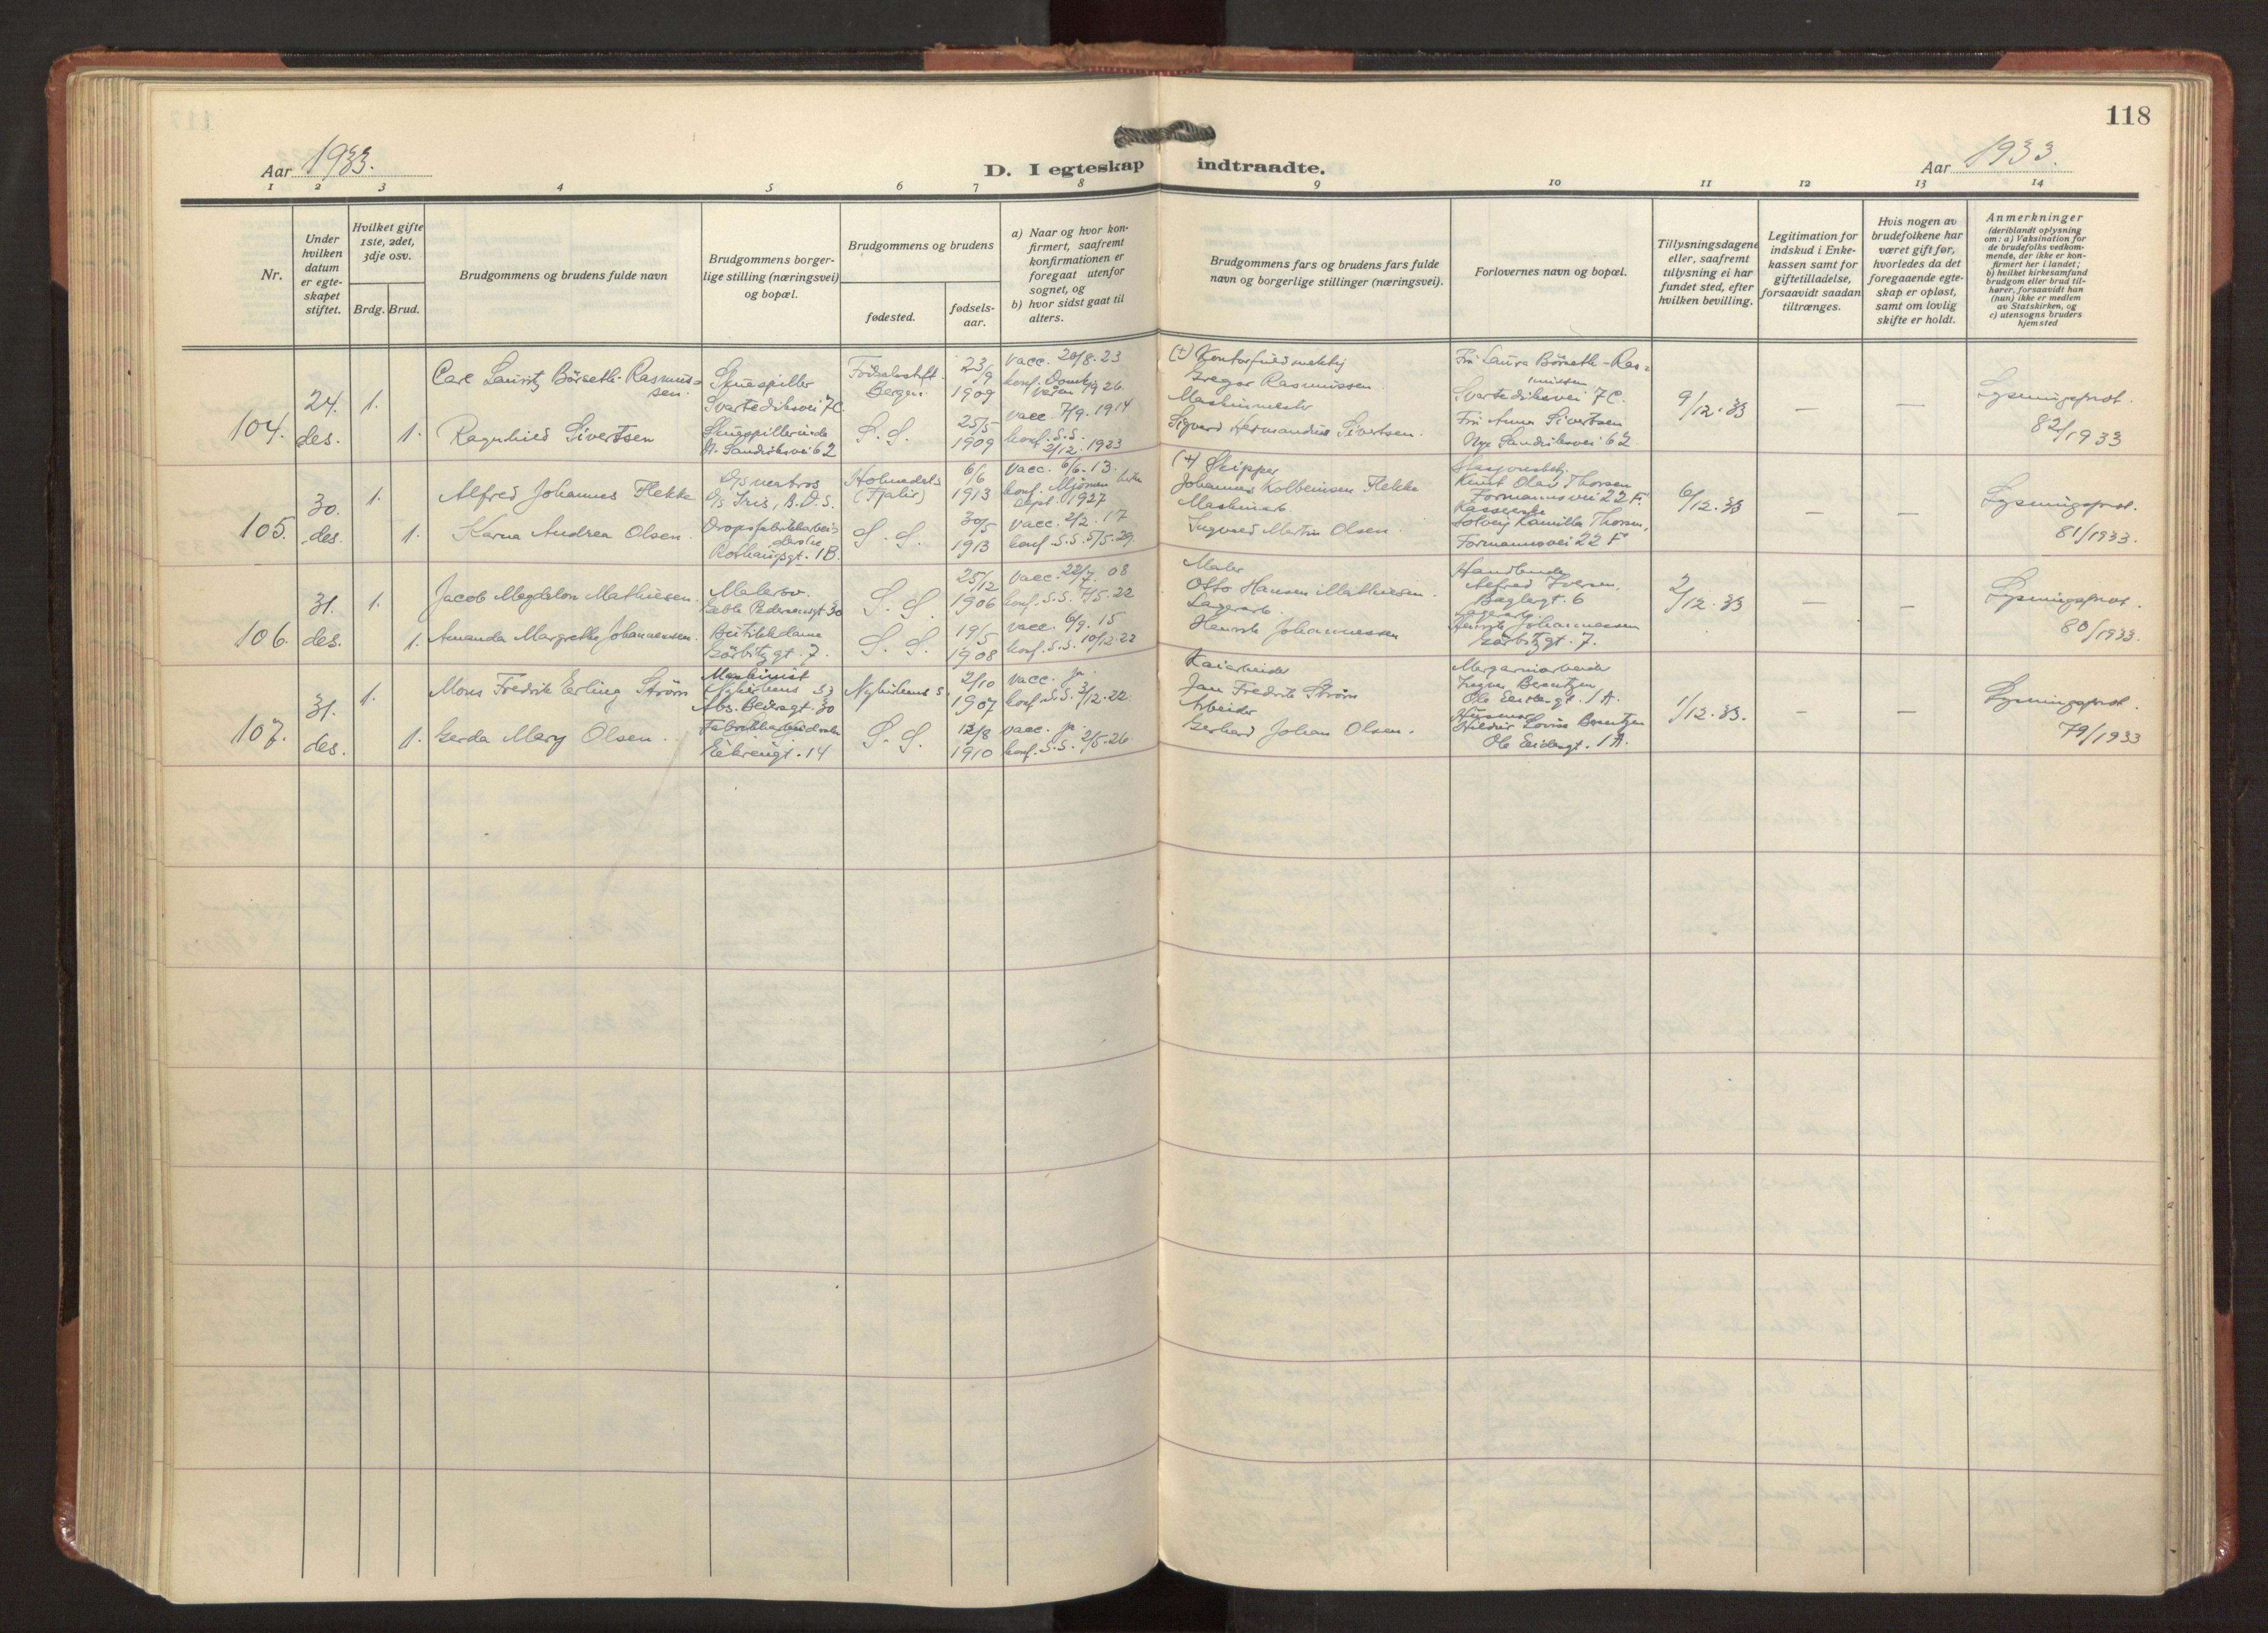 118
Aar 1933.
D. I egteskap indtraadte.
Aar 1933.
1 2 3 4 5 6 7 8 9 10 11 12 13 14
Nr.
Under hvilken datum er egteskapet stiftet.
Hvilket gifte 1ste, 2det, 3dje osv.
Brdg. Brud.
Brudgommens og brudens fulde navn
Brudgommens borgerlige stilling (næringsvei) og bopæl.
Brudgommens og brudens
fødested.
fødselsaar.
a) Naar og hvor konfirmert, saafremt konfirmationen er foregaat utenfor sognet, og
b) hvor sidst gaat til alters.
Brudgommens fars og brudens fars fulde navn og borgerlige stillinger (næringsvei).
Forlovernes navn og bopæl.
Tillysningsdagene eller, saafremt tillysning ei har fundet sted, efter hvilken bevilling.
Legitimation for indskud i Enkekassen samt for giftetilladelse, forsaavidt saadan tiltrænges.
Hvis nogen av brudefolkene har været gift før, hvorledes da det foregaaende egteskap er opløst, samt om lovlig skifte er holdt.
Anmerkninger
(deriblandt oplysning om: a) Vaksination for de brudefolks vedkommende, der ikke er konfirmert her i landet; b) hvilket kirkesamfund brudgom eller brud tilhører, forsaavidt han (hun) ikke er medlem av Statskirken, og c) utensogns bruders hjemsted
104.
24. des.
1.
1.
Carl Lauritz Börseth-Rasmussen.
Ragnhild Sivertsen
Skuespiller
Svartediksvei 7C.
Skuespillerinde
N. Sandviksvei 62
Födselsstift.
Bergen
S. S.
23/9 1909
25/5 1909
vacc. 20/8.23
konf. Domk.
våren 1926
vacc. 7/9.1914
konf. S.S.
2/12.1923
(+) Kontorfuldmektig
Gregar Rasmussen.
Maskinmester
Sigvard Hermandius Sivertsen.
Fru Laura Börseth-Rasmussen
Svartediksvei 7C.
Fru Anna Sivertsen
Nye Sandviksvei 62
9/12.33
—
—
Lysningsprot.
82/1933
105.
30. des.
1.
1.
Alfred Johannes Flekke
Karna Andrea Olsen.
D/s Iris, B.D.S.
Rothaugsgt. 1B.
Holmedals
(Fjaler)
S. S.
6/6 1913
30/5 1913
vacc. 6/6.13.
sept. 1927
vacc. 2/2.17
konf. S.S. 5/5.29.
(+) Skipper
Johannes Kolbeinsen Flekke
Maskinist.
Ingvard Martin Olsen.
Knut Olav Thorsen
Formannsvei 22 F.
Solveig Kamilla Thorsen,
Formannsvei 22 F
6/12.33
—
—
Lysningsprot.
81/1933.
106.
31. des.
1.
1.
Jacob Magdalon Mathiesen.
Amanda Margrethe Johannessen.
Malersv.
Geble Pedersensgt. 30
Butikkdame
Görbitzgt. 7.
S. S.
S. S.
25/12 1906
19/5 1908
vacc. 22/7.08
konf. S.S. 7/5.22
vacc. 6/9.15
konf. S.S. 10/12.22
Maler
Otto Hansen Mathiesen.
Lagerarb.
Henrik Johannessen
Alfred Iversen,
Baglergt. 6
Lagerarb.
Henrik Johannessen
Görbitzgt. 7.
2/12.33
—
—
Lysningsprot.
80/1933.
107.
31. des.
1.
1.
Mons Fredrik Erling Ström
Gerda Mary Olsen.
Maskinist
Nykirkens s.
Fabrikkarbeiderske
Eikrengt. 14
Nykirkens s.
S. S.
2/10 1907
12/8 1910
vacc. ja.
konf. S.S. 3/12.22
vacc. ja.
konf. S.S. 2/5.26.
Kaiarbeider
Jan Fredrik Ström
Arbeider
Gerhard Johan Olsen.
Margarinarbeider
Berentzen
1 A.
Husmor
Hildur Lovise Berentzen
1 A.
1/12.33.
—
—
Lysningsprot.
79/1933